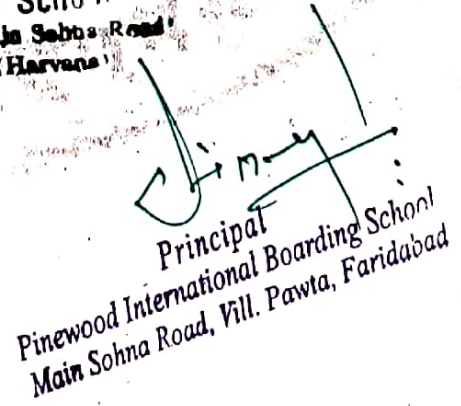 Road
(Haryana)
Principal
Pinewood International Boarding School
Main Sohna Road, Vill. Pawta, Faridabad